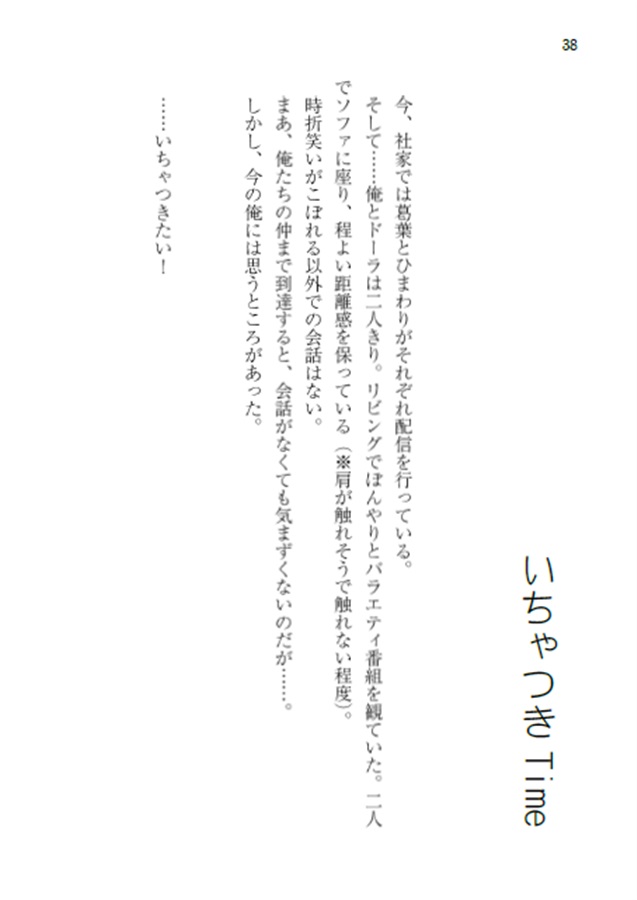 38
いちゃつきTime
今、社家では葛葉とひまわりがそれぞれ配信を行っている。
そして……俺とドーラは二人きり。リビングでぼんやりとバラエティ番組を観ていた。二人
でソファに座り、程よい距離感を保っている（※肩が触れそうで触れない程度）。
時折笑いがこぼれる以外での会話はない。
まあ、俺たちの仲まで到達すると、会話がなくても気まずくないのだが……。
しかし、今の俺には思うところがあった。
……いちゃつきたい！